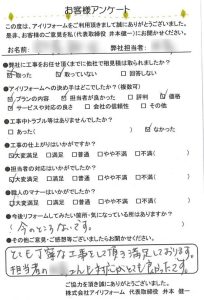 お客様アンケート
この度は、アイリフォームをご利用頂きまして誠にありがとうございました。
是非、お客様のご意見を私(代表取締役 井本健一)にお聞かせください。
お名前: 弊社担当者:
●弊社に工事をお任せ頂くまでに他社で相見積は取られましたか?
☑取った □取っていない □回答しない
●アイリフォームへの決め手はどこでしたか?(複数可)
☑プランの内容 ☑担当者が良かった □評判 ☑価格
☑サービスや対応の良さ □会社の信頼性 □その他
●工事中トラブル等はありませんでしたか?
□あった( ) ☑なかった
●工事の仕上がりはいかがですか?
☑大変満足 □満足 □普通 □やや不満 □不満( )
●担当者の対応はいかがでしたか?
☑大変満足 □満足 □普通 □やや不満 □不満( )
●職人のマナーはいかがでしたか?
☑大変満足 □満足 □普通 □やや不満 □不満( )
●今後リフォームしてみたい箇所・気になっている所はありますか?
( 今のところないです。 )
●その他ご意見・ご感想等ございましたらお聞かせください。
とても丁寧な工事をして頂き満足しております。
担当者の さんの対応もとても良かったです。
ご協力誠にありがとうございました。
株式会社アイリフォーム 代表取締役 井本 健一